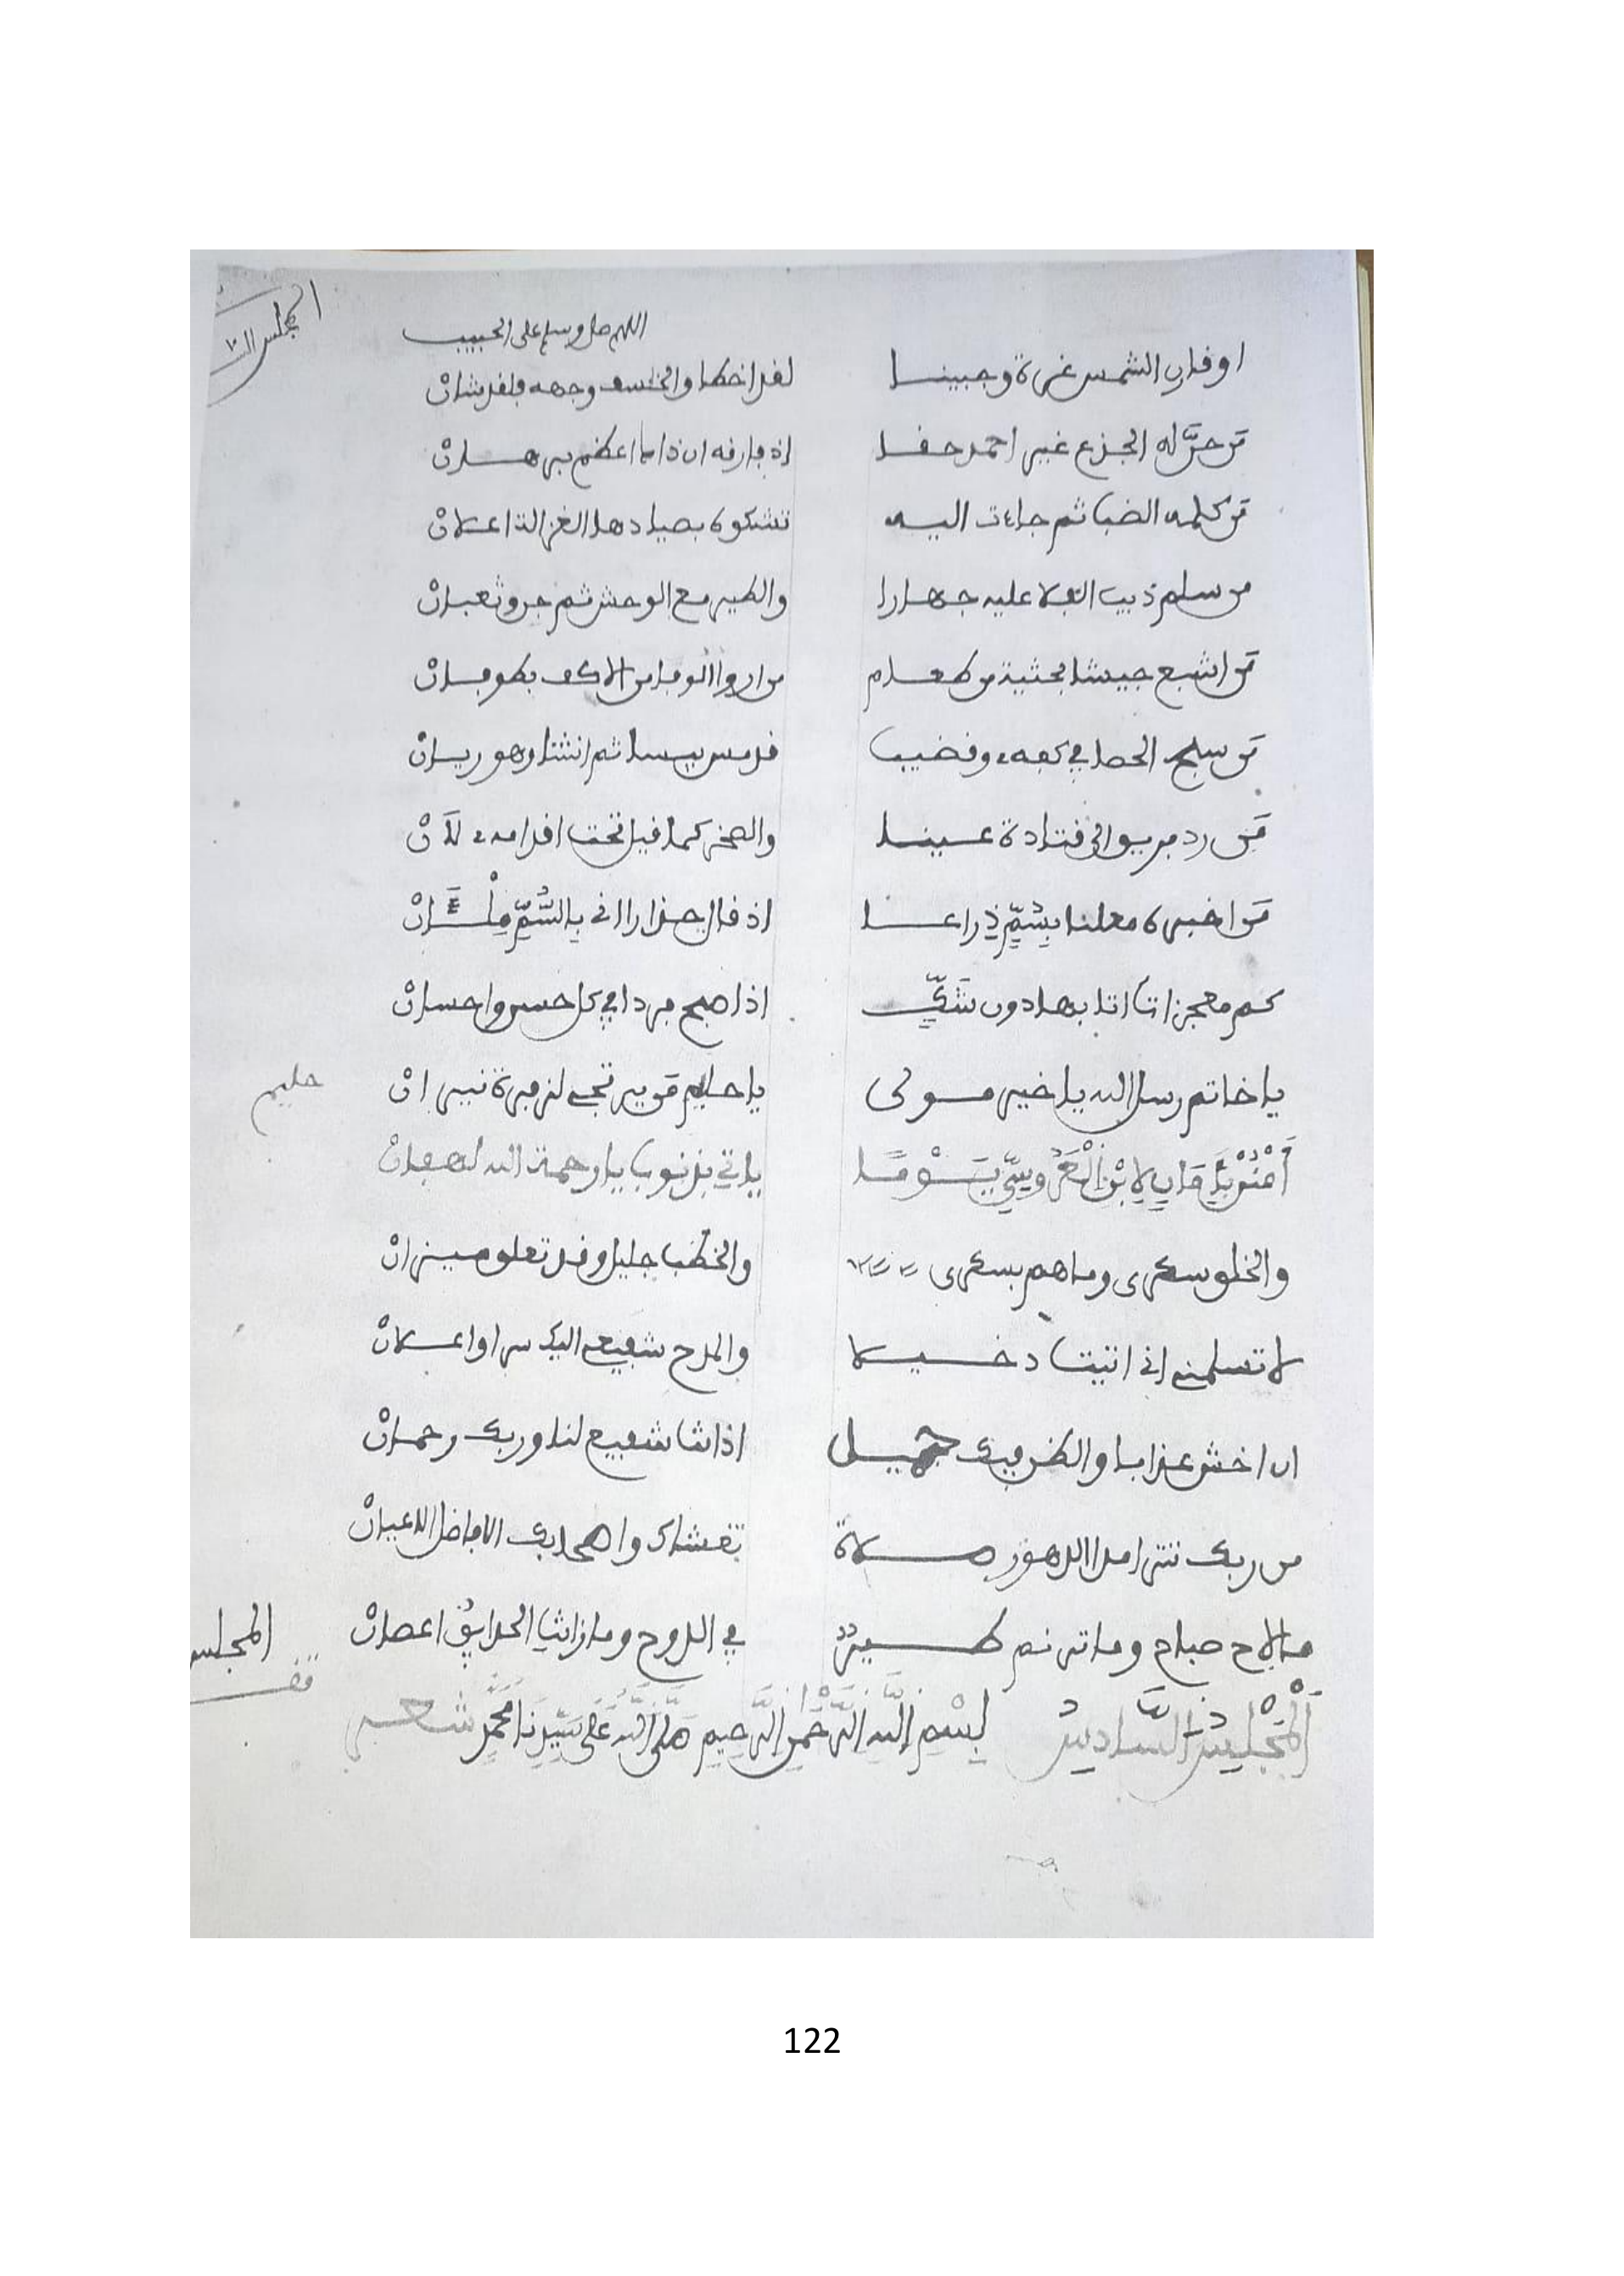 المجلس
اللهم صل وسلم على الحبيب
او قابل الشمس غرة وجبينا لقد اخطا والخسف وجهه بلقد شان
من حنّ له الجزع غير احمد حقا اذ فارقه ان ذا ما اعظم برهان
من كلمه الضبا ثم جاءت اليه تشكوه بصيادها الغزالة اعلان
من سلم ذيب الفلا عليه جهارا والطير مع الوحش ثم جرو ثعبان
من اشبع جيشا بحثية من طعام من اروا الوفا من الاكف بطوفان
من سبح الحصا في كفه وقضيب قد مس يبسا ثم انثنا وهو ريان
من رد مريو الى قتادة عينا والصخر كما قيل تحت اقدامه لان
من اخبره معلنا بِسُمٍّ ذِراعا اذ قال حذارا انى بالسُّمِّ مِلْـَٔان
كم معجزات اتا بها دون شَكٍّ اذ اصبح فردا في كل حسن واحسان
يا خاتم رسل الله يا خير مولى يا حليم من يرتجى لزفرة نيران
حليم
اُمْنُنْ بِأَمَانٍ لِابْنِ الْعَرُوسِيِّ يَوْمًا ياتي بذنوب يا رحمة الله لهفان
والخلق سكرى وما هم بسكرى والخطب جليل وقد تعلو ميزان
لا تسلمنى انى اتيت دخيلا والمدح شفيعه اليك سرا واعلان
ان اخش عذابا والظن فيك جميل اذ انت شفيع لنا وربك رحمان
من ربك تترا مدا الدهور صلاة تغشاك واصحابك الافاضل الاعيان
ما لاح صباح وما ترنم طير في الدوح وما زانت الحدايق اغصان
المجلس
اَلْمَجْلِسُ السَّادِسُ بِسْمِ اللَّهِ الرَّحْمَنِ الرَّحِيمِ صَلَّى اللَّهُ عَلَى سَيِّدِنَا مُحَمَّدٍ شعر
122